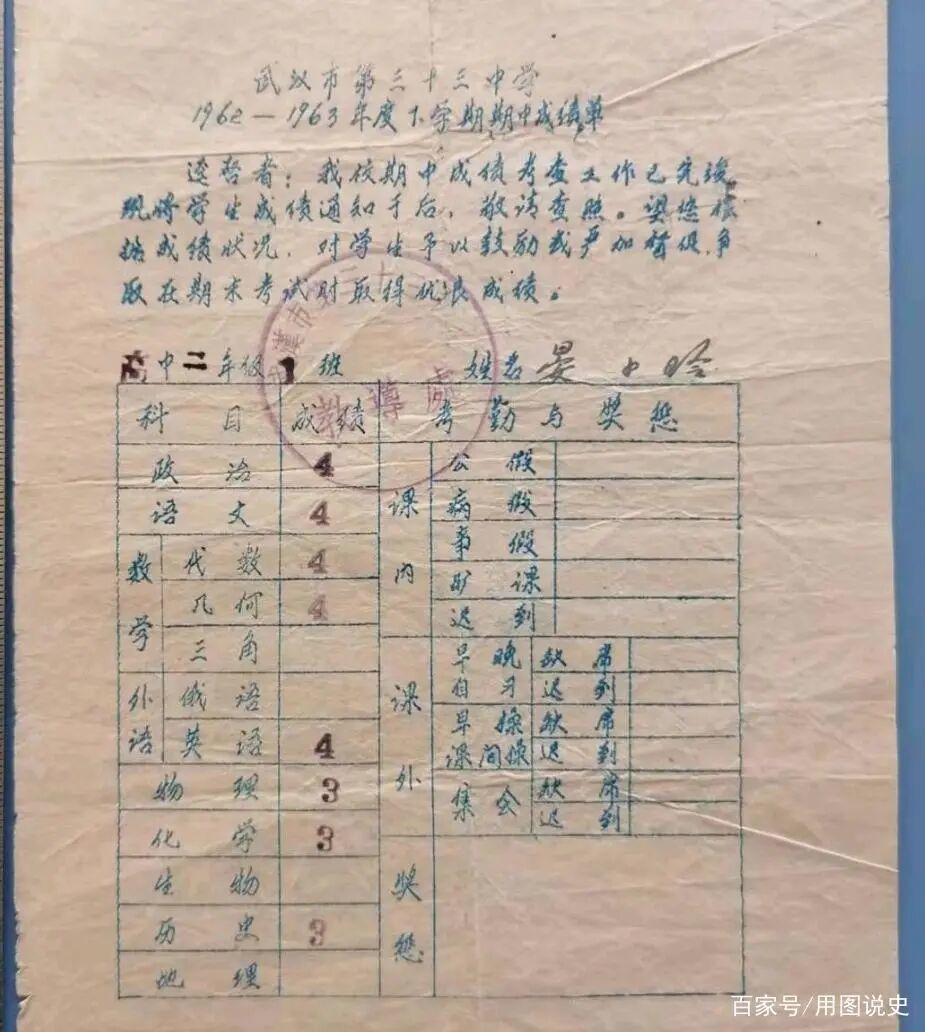 武汉市第三十三中学
1962—1963年度下学期期中成绩单
迳启者：我校期中成绩考查工作已完竣
现将学生成绩通知于后，敬请查照。望您根
据成绩状况，对学生予以鼓励或严加督促，争
取在期末考试时取得优良成绩。
高中二年级1班 姓名 晏
科目 成绩 考勤与奖惩
政治 4
语文 4
数学 代数 4
几何 4
三角
外语 俄语
英语 4
物理 3
化学 3
生物
历史 3
地理
课内 公假
病假
事假
旷课
迟到
课外 早晚自习 缺席
迟到
早操课间操 缺席
迟到
集会 缺席
迟到
奖惩
教导处
百家号/用图说史